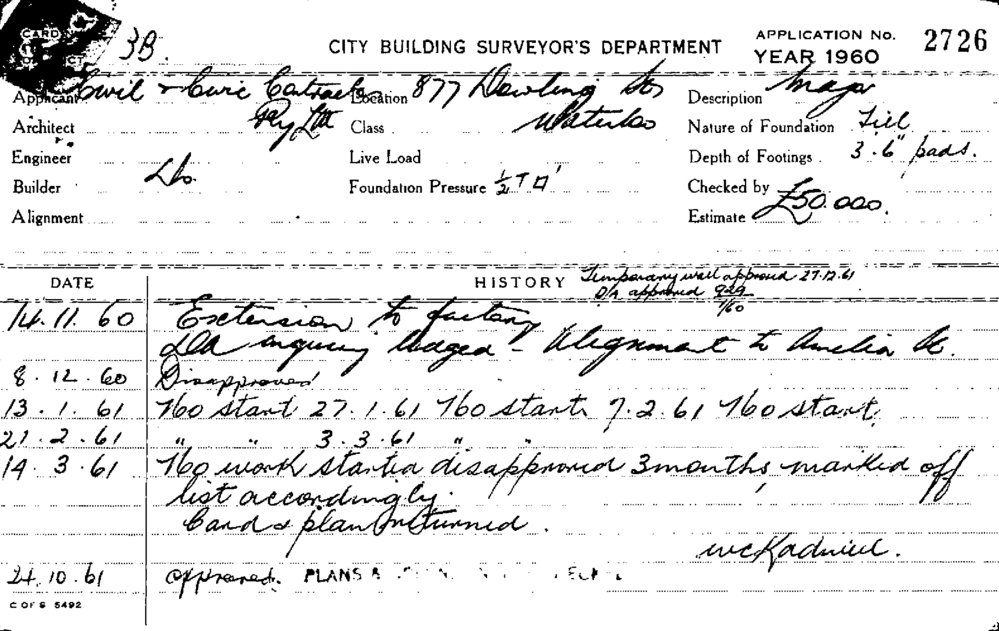 CARD
3B.
CITY BUILDING SURVEYOR'S DEPARTMENT
APPLICATION No. 2726
YEAR 1960
Applicant Civil & Civic Contractors Location 877 Dowling St, Description
Architect Pty Ltd Class Waterloo Nature of Foundation Fill
Engineer Live Load Depth of Footings . 3.6" pads.
Builder Do. Foundation Pressure ½ T □' Checked by
Alignment Estimate £50.000.
DATE HISTORY Temporary wall approved 27.12.61
D/A approved 929/60
14.11.60 Extension to factory
DA inquiry lodged - Alignment to Amelia St.
8.12.60 Disapproved
13.1.61 No start 27.1.61 No start 7.2.61 No start.
21.2.61 " " 3.3.61 " "
14.3.61 No work started disapproved 3 months, marked off
list accordingly.
Card & plan returned.
24.10.61 approved. PLANS
C OF S 5492